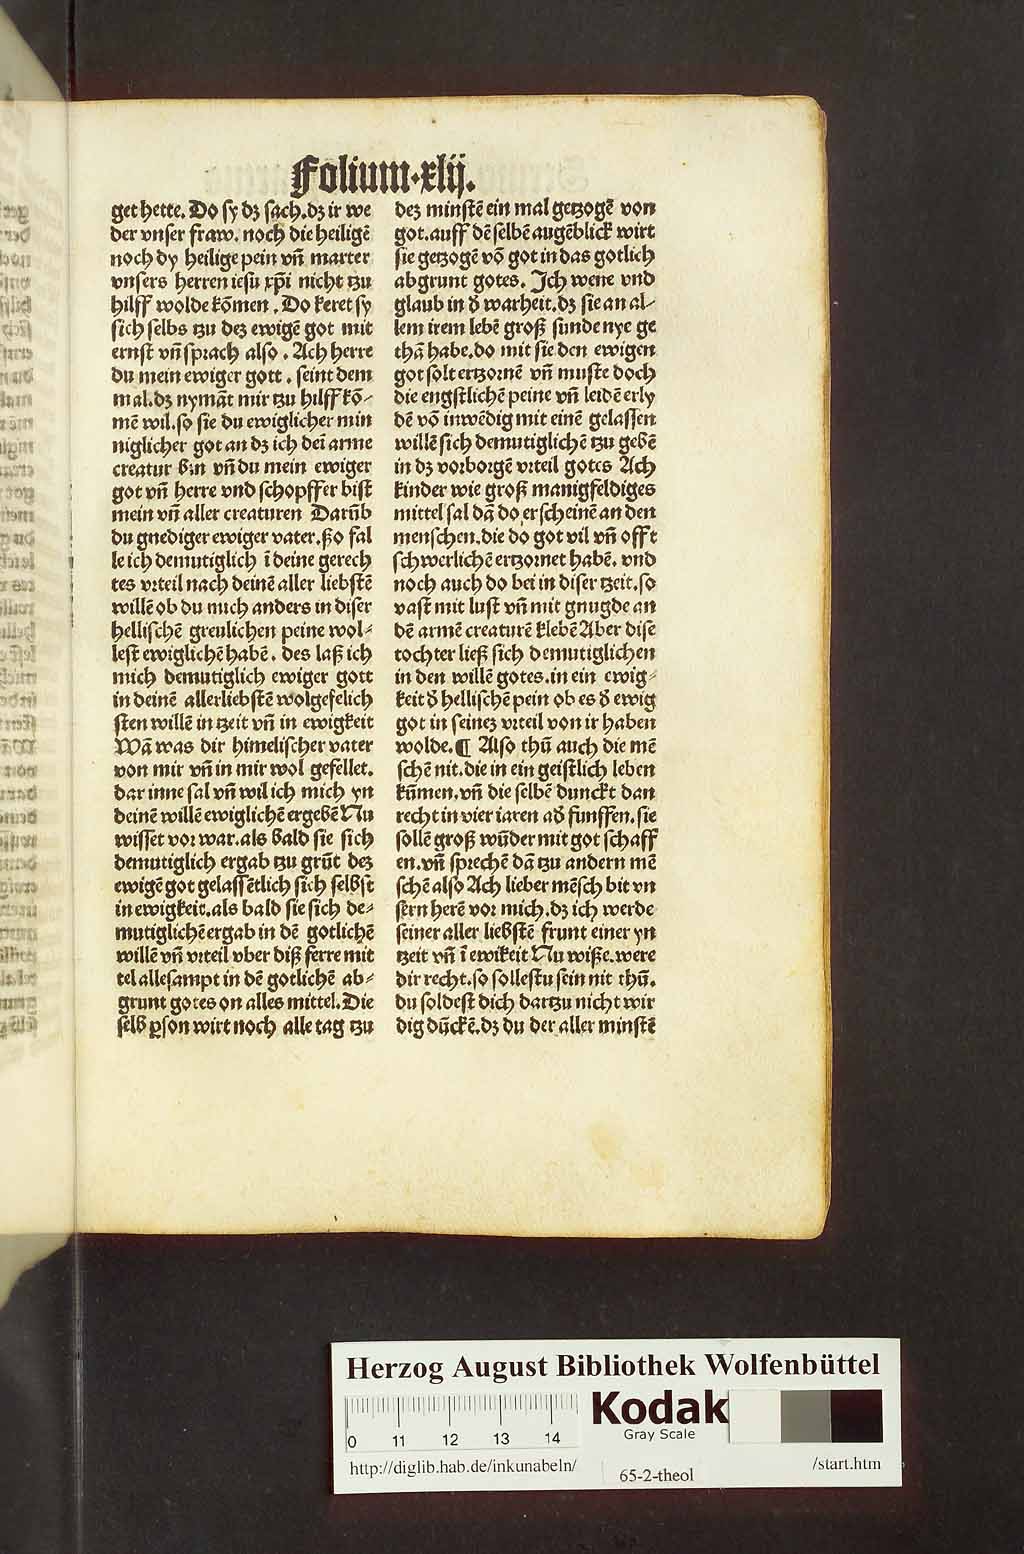 Folium·xlij.
get hette. Do sy dz sach. dz ir we
der vnser fraw. noch die heiligē
noch dy heilige pein vn̄ marter
vnsers herren iesu xp̄i nicht tzu
hilff wolde kōmen. Do keret sy
sich selbs tzu dez ewigē got mit
ernst vn̄ sprach also. Ach herre
du mein ewiger gott. seint dem
mal. dz nymāt mir tzu hilff kō⸗
mē wil. so sie du ewiglicher min
niglicher got an dz ich dei᷑ arme
creatur bin vn̄ du mein ewiger
got vn̄ herre vnd schopffer bist
mein vn̄ aller creaturen Darūb
du gnediger ewiger vater. ßo fal
le ich demutiglich ī deine gerech
tes vrteil nach deinē aller liebstē
willē ob du mich anders in diser
hellischē greulichen peine wol⸗
lest ewiglichē habē. des laß ich
mich demutiglich ewiger gott
in deinē allerliebstē wolgefelich
sten willē in tzeit vn̄ in ewigkeit
Wā was dir himelischer vater
von mir vn̄ in mir wol gefellet.
dar inne sal vn̄ wil ich mich yn
deinē willē ewiglichē ergebē Nu
wisset vor war. als bald sie sich
demutiglich ergab tzu grūt dez
ewigē got gelassētlich sich selbst
in ewigkeit. als bald sie sich de⸗
mutiglichē ergab in dē gotlichē
willē vn̄ vrteil vber diß ferre mit
tel allesampt in dē gotlichē ab⸗
grunt gotes on alles mittel. Die
selb ꝑson wirt noch alle tag tzu
dez minstē ein mal getzogē von
got. auff dē selbē augēblick wirt
sie getzogē vō got in das gotlich
abgrunt gotes. Ich wene vnd
glaub in d̕ warheit. dz sie an al⸗
lem irem lebē groß sunde nye ge
thā habe. do mit sie den ewigen
got solt ertzornē vn̄ muste doch
die engstlichē peine vn̄ leidē erly
dē vō inwēdig mit einē gelassen
willē sich demutiglichē tzu gebē
in dz vorborgē vrteil gotes Ach
kinder wie groß manigfeldiges
mittel sal dā do erscheinē an den
menschen. die do got vil vn̄ offt
schwerlichē ertzornet habē. vnd
noch auch do bei in diser tzeit. so
vast mit lust vn̄ mit gnugde an
dē armē creaturē klebē Aber dise
tochter ließ sich demutiglichen
in den willē gotes. in ein ewig⸗
keit d̕ hellischē pein ob es d̕ ewig
got in seinez vrteil von ir haben
wolde. ¶ Also thū auch die mē
schē nit. die in ein geistlich leben
kūmen. vn̄ die selbē dunckt dan
recht in vier iaren ad̕ funffen. sie
sollē groß wūder mit got schaff
en. vn̄ sprechē dā tzu andern mē
schē also Ach lieber mēsch bit vn
sern herē vor mich. dz ich werde
seiner aller liebstē frunt einer yn
tzeit vn̄ ī ewikeit Nu wiße. were
dir recht. so sollestu sein nit thū.
du soldest dich dartzu nicht wir
dig dūckē. dz du der aller minstē
Herzog August Bibliothek Wolfenbüttel
0 11 12 13 14
Kodak
Gray Scale
http://diglib.hab.de/inkunabeln/
65-2-theol
/start.htm